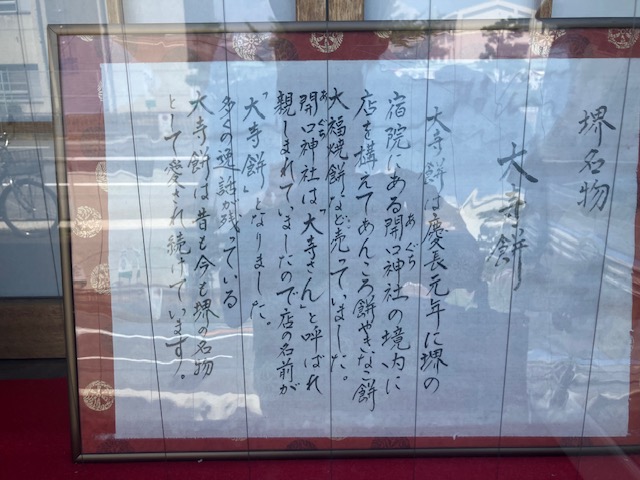 堺名物
大寺餅
大寺餅は慶長元年に堺の
宿院にある開口神社の境内に
あぐち
店を構えてあんころ餅やきなこ餅
大福焼餅など売っていました。
開口神社は「大寺さん」と呼ばれ
あぐち
親しまれていましたので店の名前が
「大寺餅」となりました。
多くの逸話が残っている
大寺餅は昔も今も堺の名物
として愛され続けています。